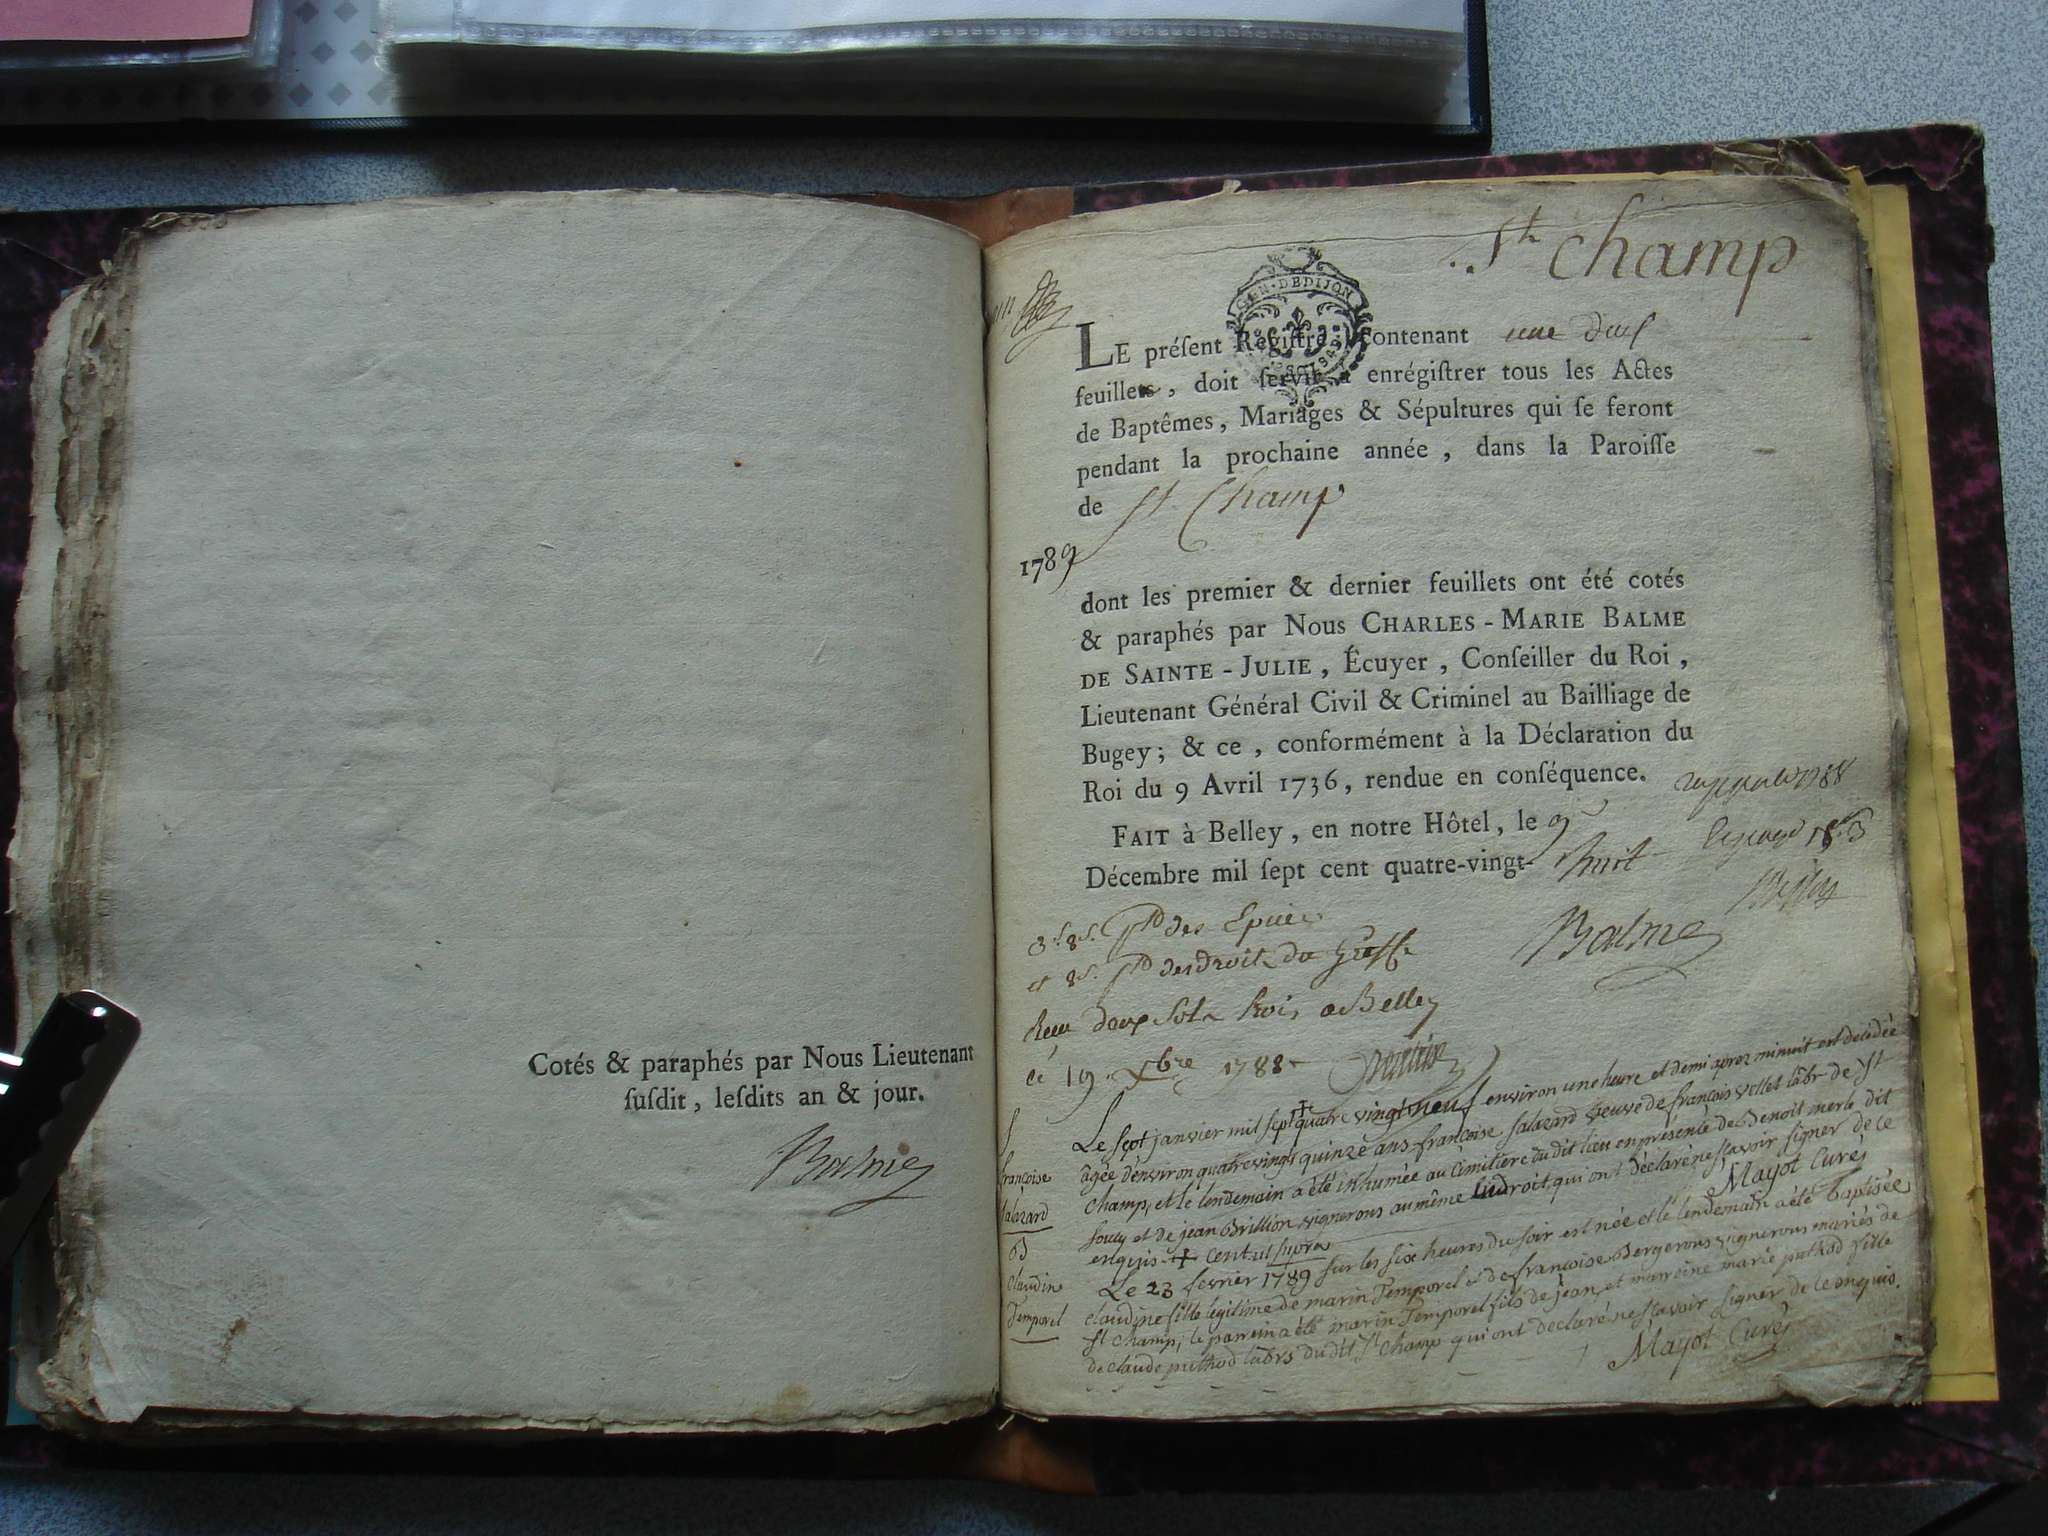 Cotés & paraphés par Nous Lieutenant
ſuſdit, leſdits an & jour.
Balme
St champ
GEN·DEDIJON
LE préſent Regiſtre, contenant une
feuillets, doit ſervir à enrégiſtrer tous les Actes
de Baptêmes, Mariages & Sépultures qui ſe feront
pendant la prochaine année, dans la Paroiſſe
de St Champ
1789
dont les premier & dernier feuillets ont été cotés
& paraphés par Nous CHARLES-MARIE BALME
DE SAINTE-JULIE, Écuyer, Conſeiller du Roi,
Lieutenant Général Civil & Criminel au Bailliage de
Bugey; & ce, conformément à la Déclaration du
Roi du 9 Avril 1736, rendue en conſéquence.
FAIT à Belley, en notre Hôtel, le 9
Décembre mil ſept cent quatre-vingt-huit
Balme
des droits du Greffe
Recu douze sols trois a Belley
ce 19 Xbre 1788
S
françoise
Salazard
Le sept janvier mil sept + quatre vingt neuf environ une heure et demi aprez minuit est décédée
agée d'environ quatre vingt quinze ans françoise Salazard veuve de françois vellet labr de St
champ, et le lendemain a été inhumée au cimitiere du dit lieu en présence de Benoit merle dit
et de jean Brillion vignerons au même endroit, qui ont déclaré ne sçavoir signer de ce
enquis + cent ut supra Mayot Curé
B
claudine
Temporel
Le 23 fevrier 1789 sur les six heures du soir est née et le lendemain a été baptisée
claudine fille legitime de marin Temporel et de françoise Bergeron vignerons mariés de
St champ, le parrein a été marin Temporel fils de jean, et marreine marie puthod fille
de claude puthod labrs du dit St champ qui ont déclaré ne sçavoir signer de ce enquis.
Mayot Curé